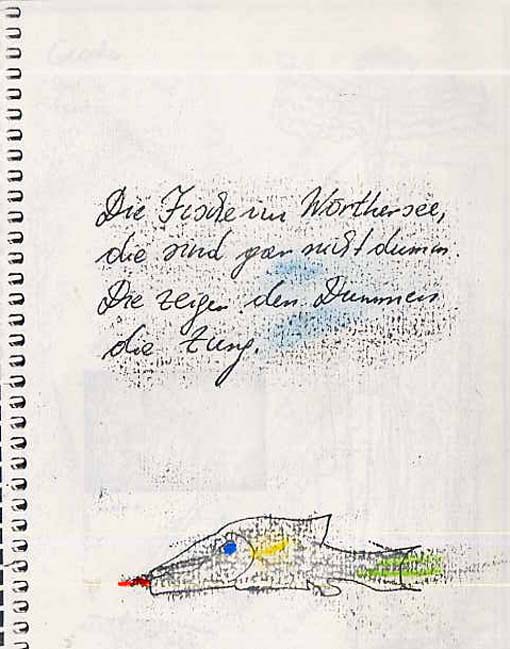 Die Fische im Wörthersee,
die sind gar nicht dumm.
Die zeigen den Dummen
die Zung.